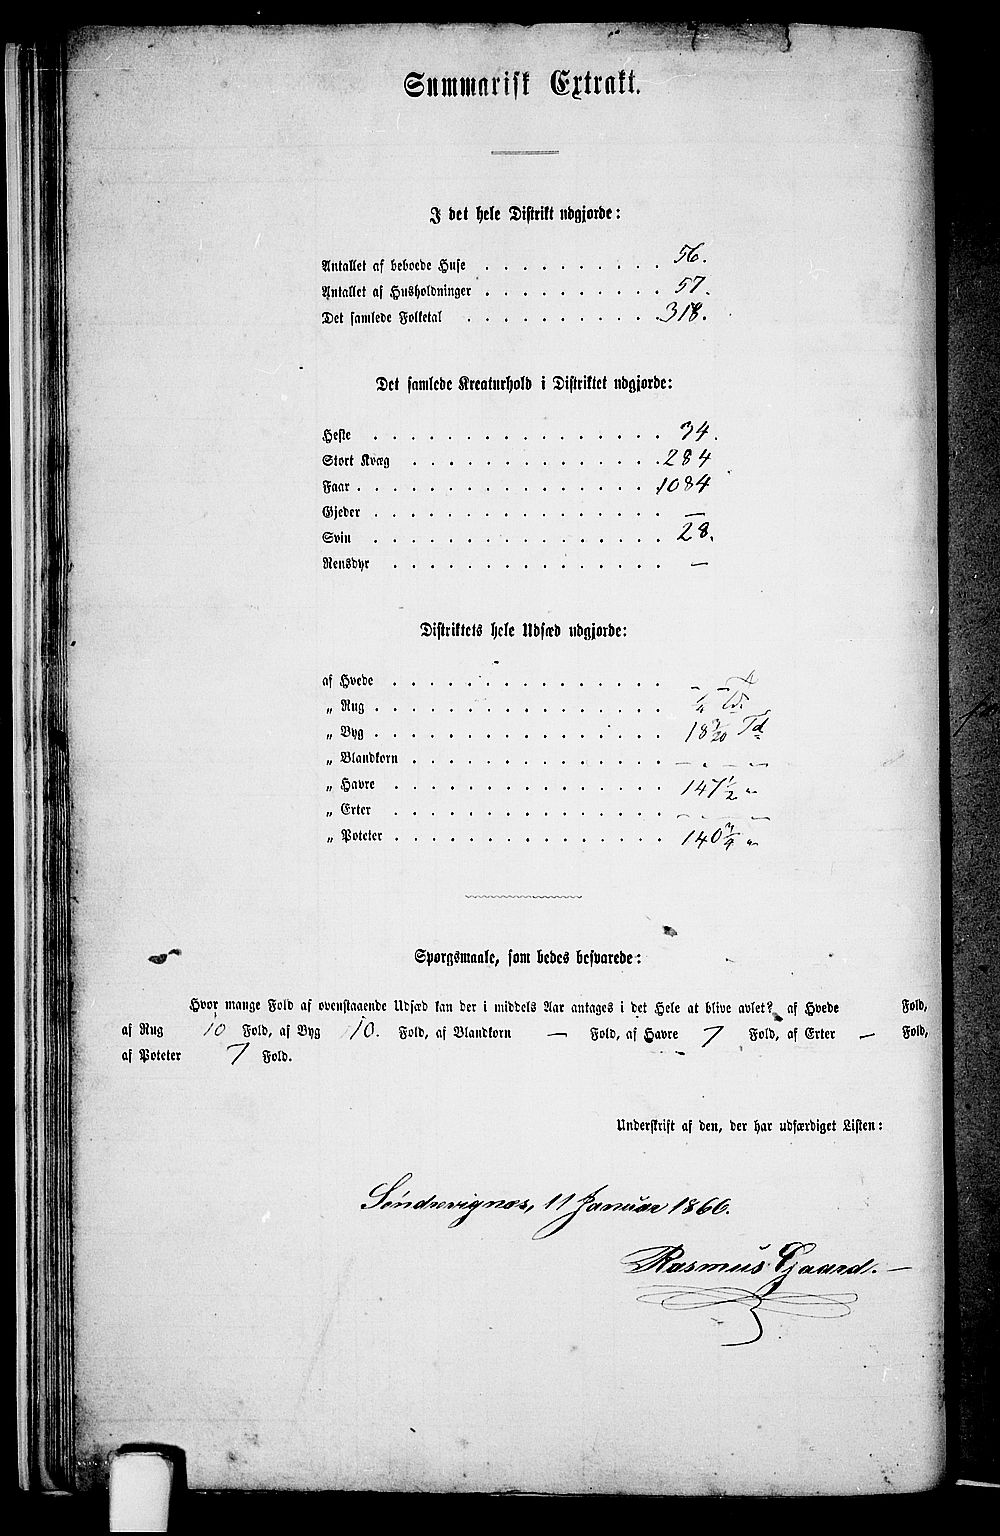 Summarisk Extrakt.
I det hele Distrikt udgjorde:
Antallet af beboede Huse . . . . . . . . . . 56.
Antallet af Husholdninger . . . . . . . . . . 57.
Det samlede Folketal . . . . . . . . . . . 318.
Det samlede Kreaturhold i Distriktet udgjorde:
Heste . . . . . . . . . . . . . . . . 34.
Stort Kvæg . . . . . . . . . . . . . . 284
Faar . . . . . . . . . . . . . . . . . 1084
Gjeder . . . . . . . . . . . . . . . . —
Svin . . . . . . . . . . . . . . . . 28.
Rensdyr . . . . . . . . . . . . . . . —
Distriktets hele Udsæd udgjorde:
af Hvede . . . . . . . . . . . . . . .
„ Rug . . . . . . . . . . . . . . . . Td.
„ Byg . . . . . . . . . . . . . . . . 18 3/20 Td
„ Blandkorn . . . . . . . . . . . . . . — „ — —
„ Havre . . . . . . . . . . . . . . . 147 1/2 „
„ Erter . . . . . . . . . . . . . . . — — — —
„ Poteter . . . . . . . . . . . . . . . 140 3/4 „
Spørgsmaale, som bedes besvarede:
Hvor mange Fold af ovenstaaende Udsæd kan der i middels Aar antages i det Hele at blive avlet? af Hvede Fold,
af Rug 10 Fold, af Byg 10. Fold, af Blandkorn — Fold, af Havre 7 Fold, af Erter — Fold,
af Poteter 7 Fold.
Underskrift af den, der har udfærdiget Listen:
Søndrevignæs, 11 Januar 1866.
Rasmus Gjaard. —